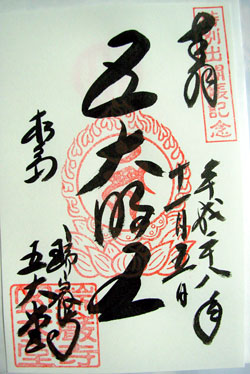 特別出開帳記念
奉拝
平成二八年
十一月五日
五大明王
松島
瑞巌寺
五大堂